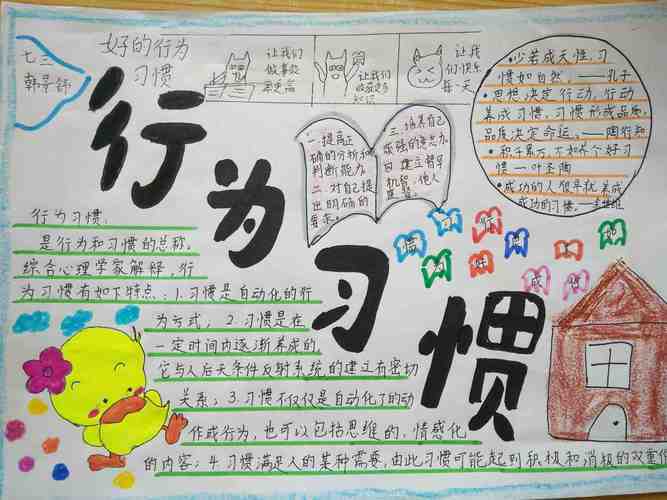 七三
韩景舒
好的行为
习惯
让我们
做事效
率更高
让我们
收获更多
知识
让我
们快乐
每一天
行为习惯
•少若成天性，习
惯如自然。——孔子
•思想决定行动，行动
养成习惯，习惯形成品质，
品质决定命运。——陶行知
•积千累万，不如养个好习
惯——叶圣陶
•成功的人
成功的习惯。
一.提高正
确的分析和
判断能力
二.对自己提
出明确的
要求。
三.培养自己
顽强的意志力
四.建立督导
机智，他人
监督。
行为习惯：
是行为和习惯的总称，
综合心理学家解释，行
为习惯有如下特点：1.习惯是自动化的行
为方式；2.习惯是在
一定时间内逐渐养成的，
它与人后天条件反射系统的建立有密切
关系；3.习惯不仅仅是自动化了的动
作或行为，也可以包括思维的，情感化
的内容；4.习惯满足人的某种需要，由此习惯可能起到积极和消极的双重作